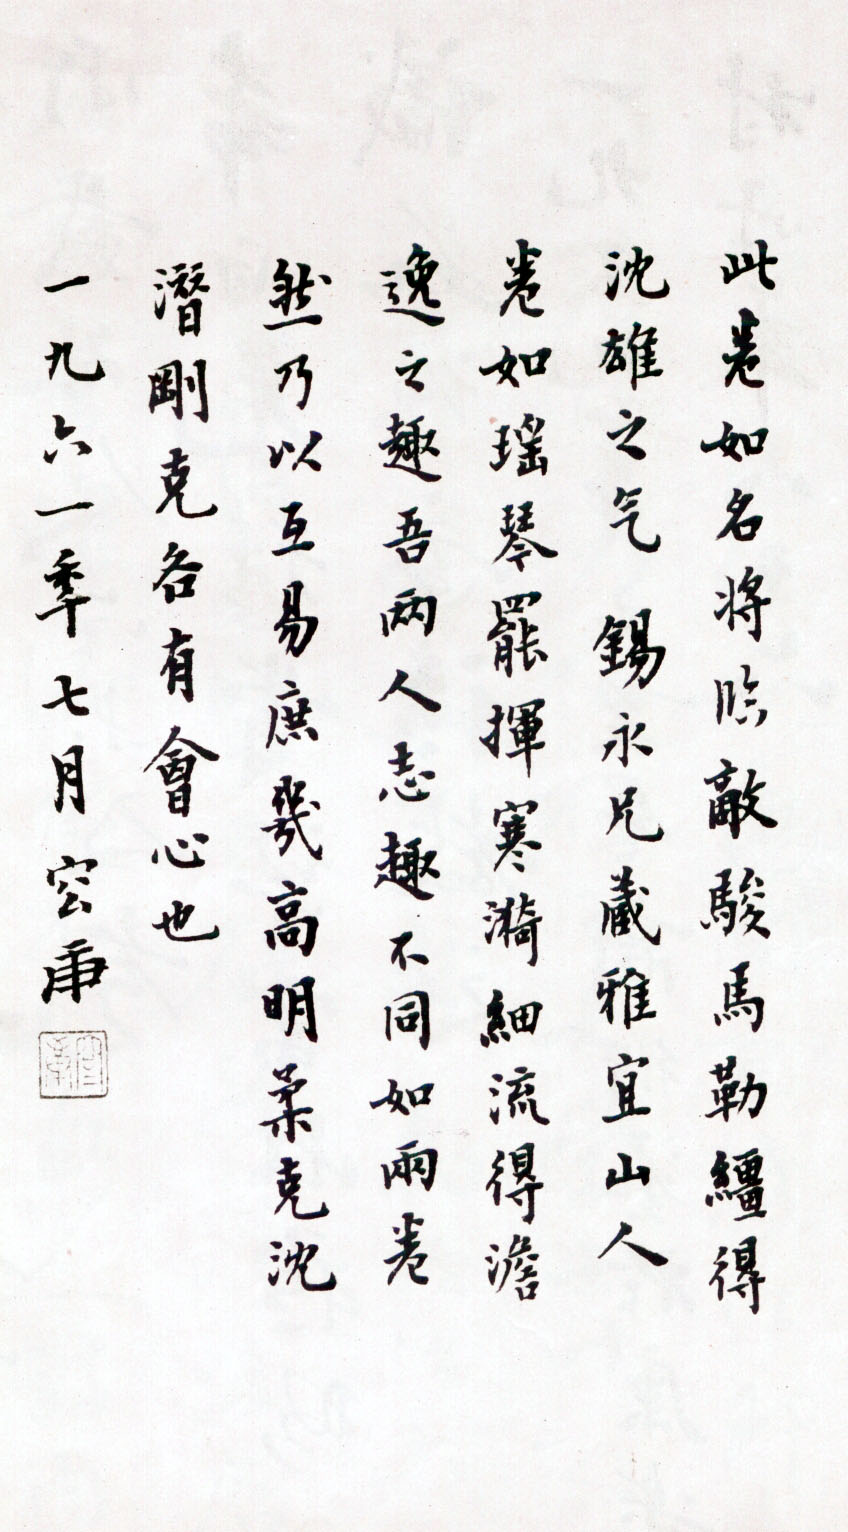 此卷如名将临敵駿馬勒繮得
沈雄之气 錫永兄藏雅宜山人
卷如瑶琴罷揮寒漪細流得澹
逸之趣吾两人志趣不同如兩卷
然乃以互易庶幾高明柔克沈
潛剛克各有會心也
一九六一年七月容庚